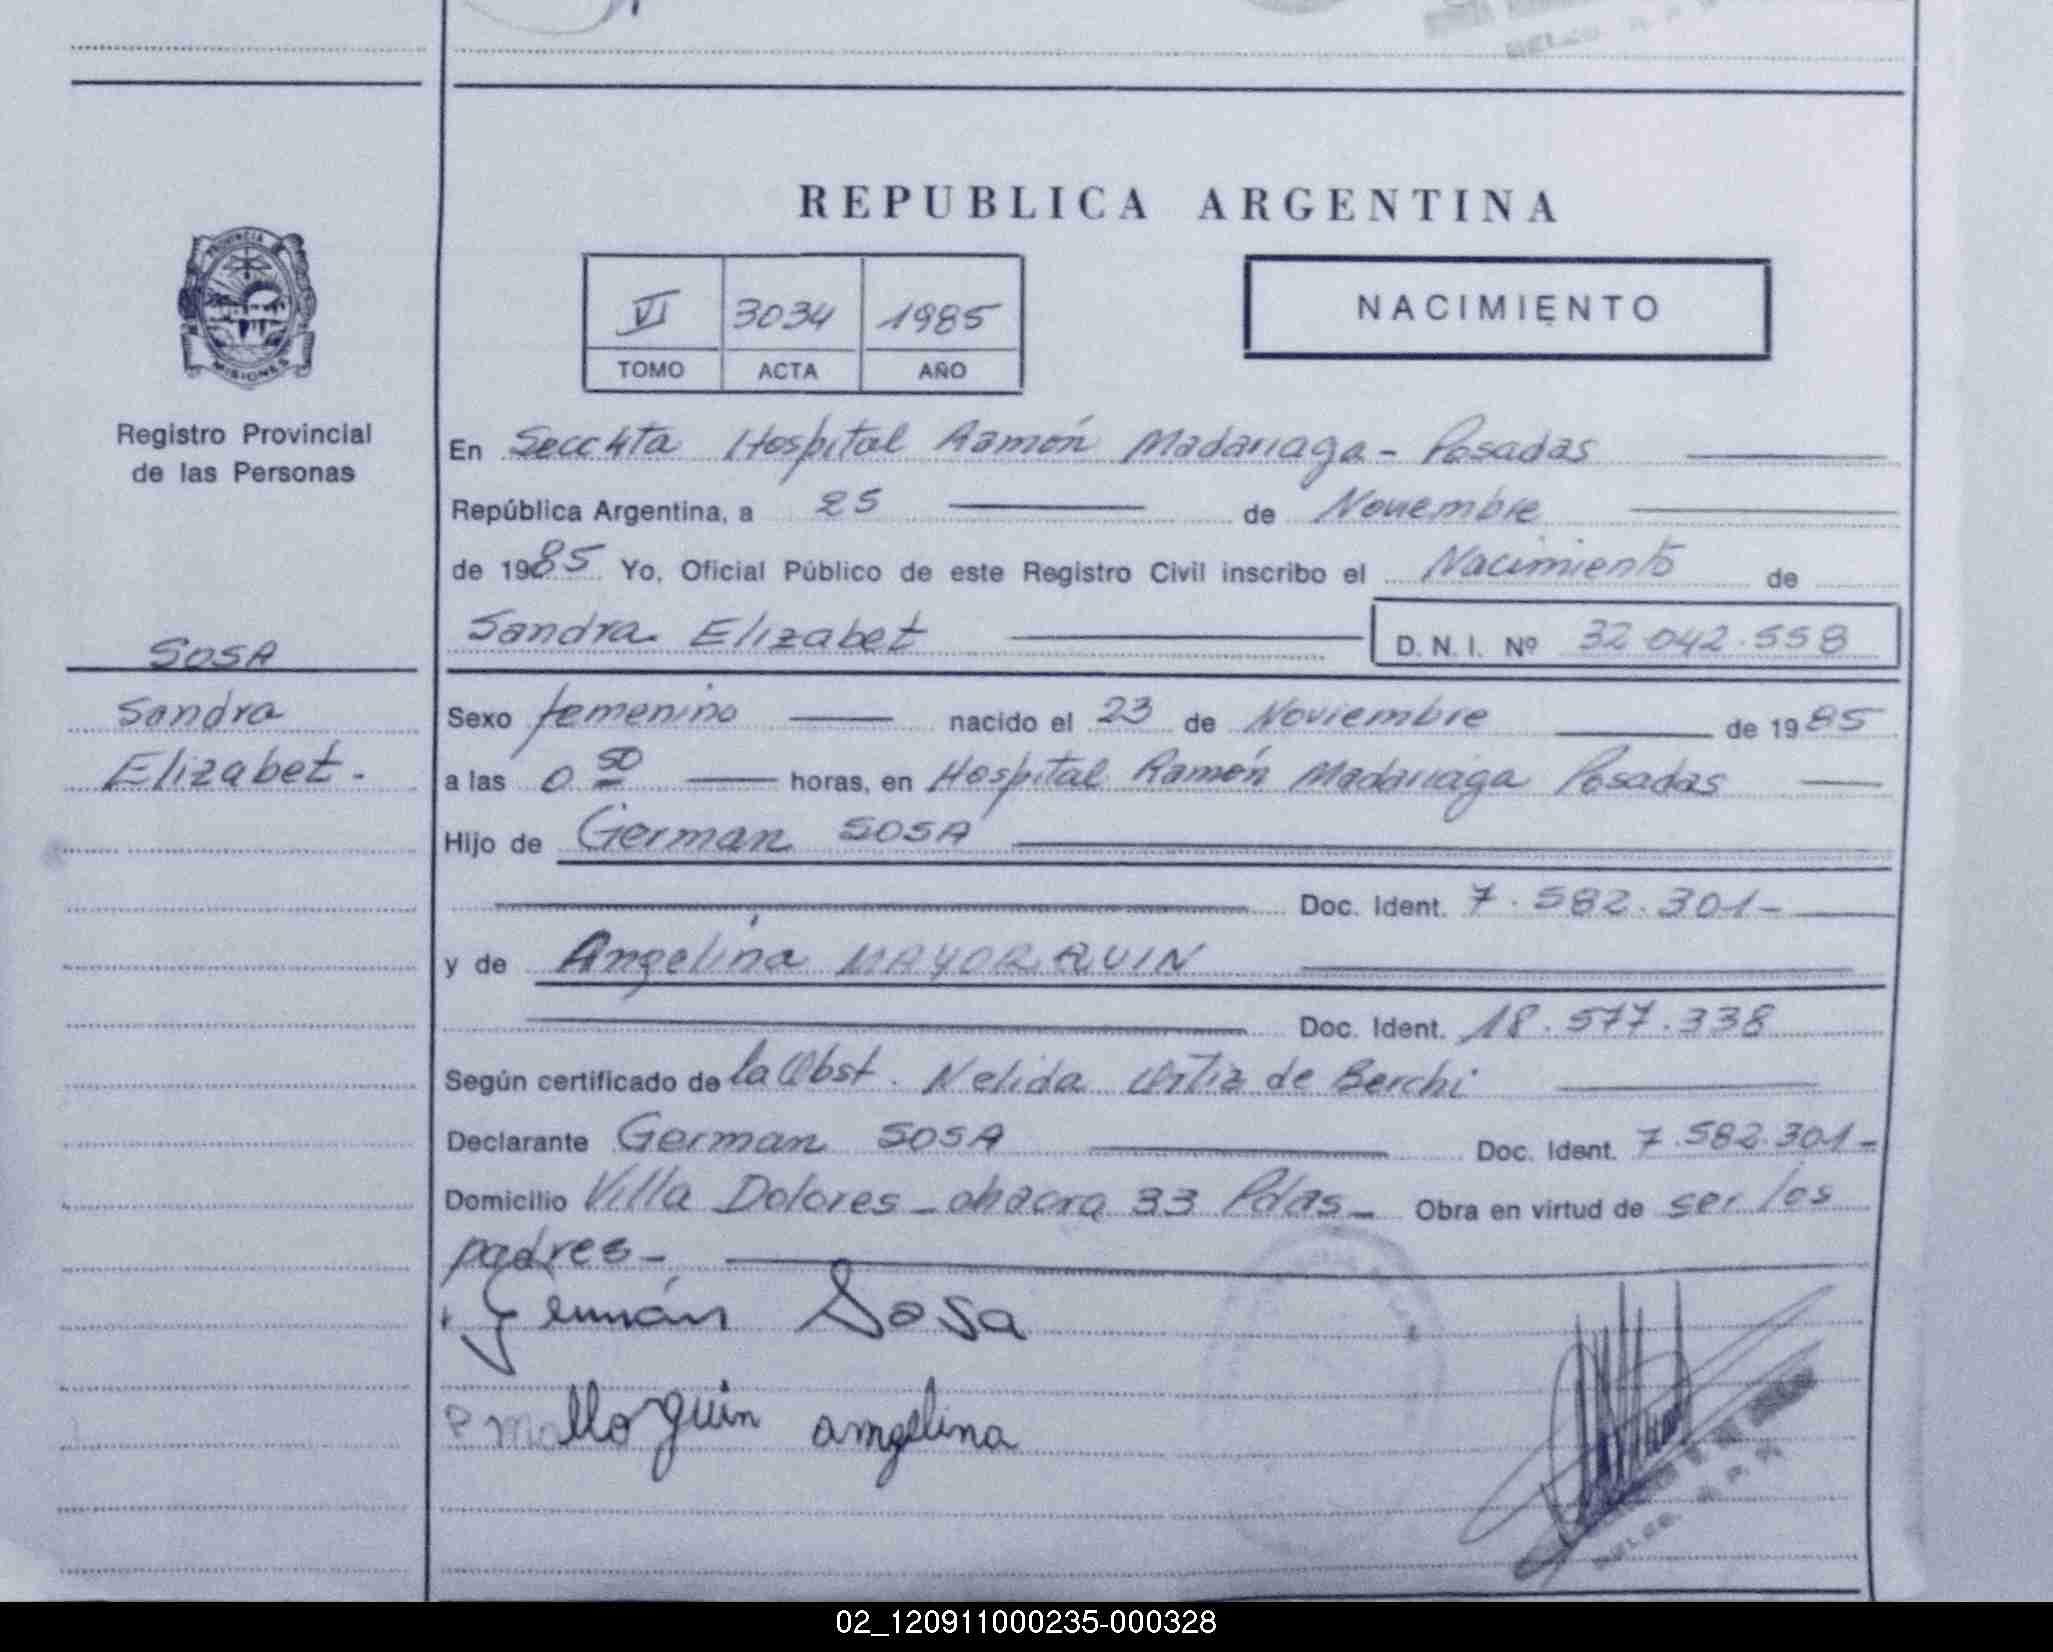 REPUBLICA ARGENTINA
PROVINCIA DE
MISIONES
VI 3034 1985
TOMO ACTA AÑO
NACIMIENTO
Registro Provincial
de las Personas
En Secc 4ta Hospital Ramón Madariaga - Posadas
República Argentina, a 25 de Noviembre
de 1985 Yo, Oficial Público de este Registro Civil inscribo el Nacimiento de
Sandra Elizabet D. N. I. Nº 32.042.558
SOSA
Sandra
Elizabet.
Sexo femenino nacido el 23 de Noviembre de 1985
a las 0 50 horas, en Hospital Ramón Madariaga Posadas
Hijo de German SOSA
Doc. Ident. 7.582.301-
y de Angelina MAYORQUIN
Doc. Ident. 18.577.338
Según certificado de la Obst. Nelida Ortiz de Berchi
Declarante German SOSA Doc. Ident. 7.582.301-
Domicilio Villa Dolores - chacra 33 Pdas- Obra en virtud de ser los
padres-
Germán Sosa
Malloquin angelina
02_120911000235-000328